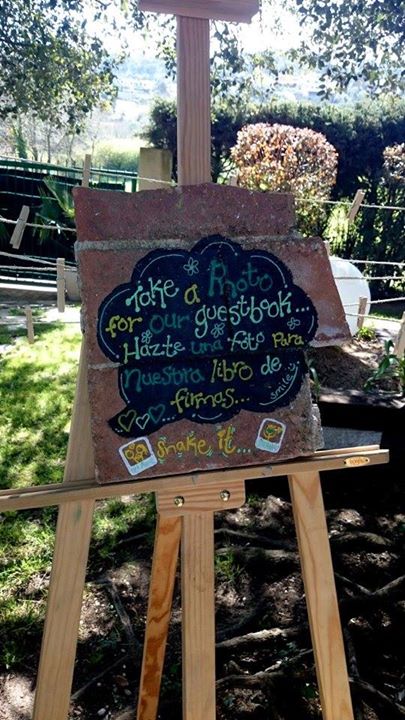 Take a Photo
for our guestbook...
Hazte una foto Para
Nuestra libro de
firmas...
smile :)
shake it...